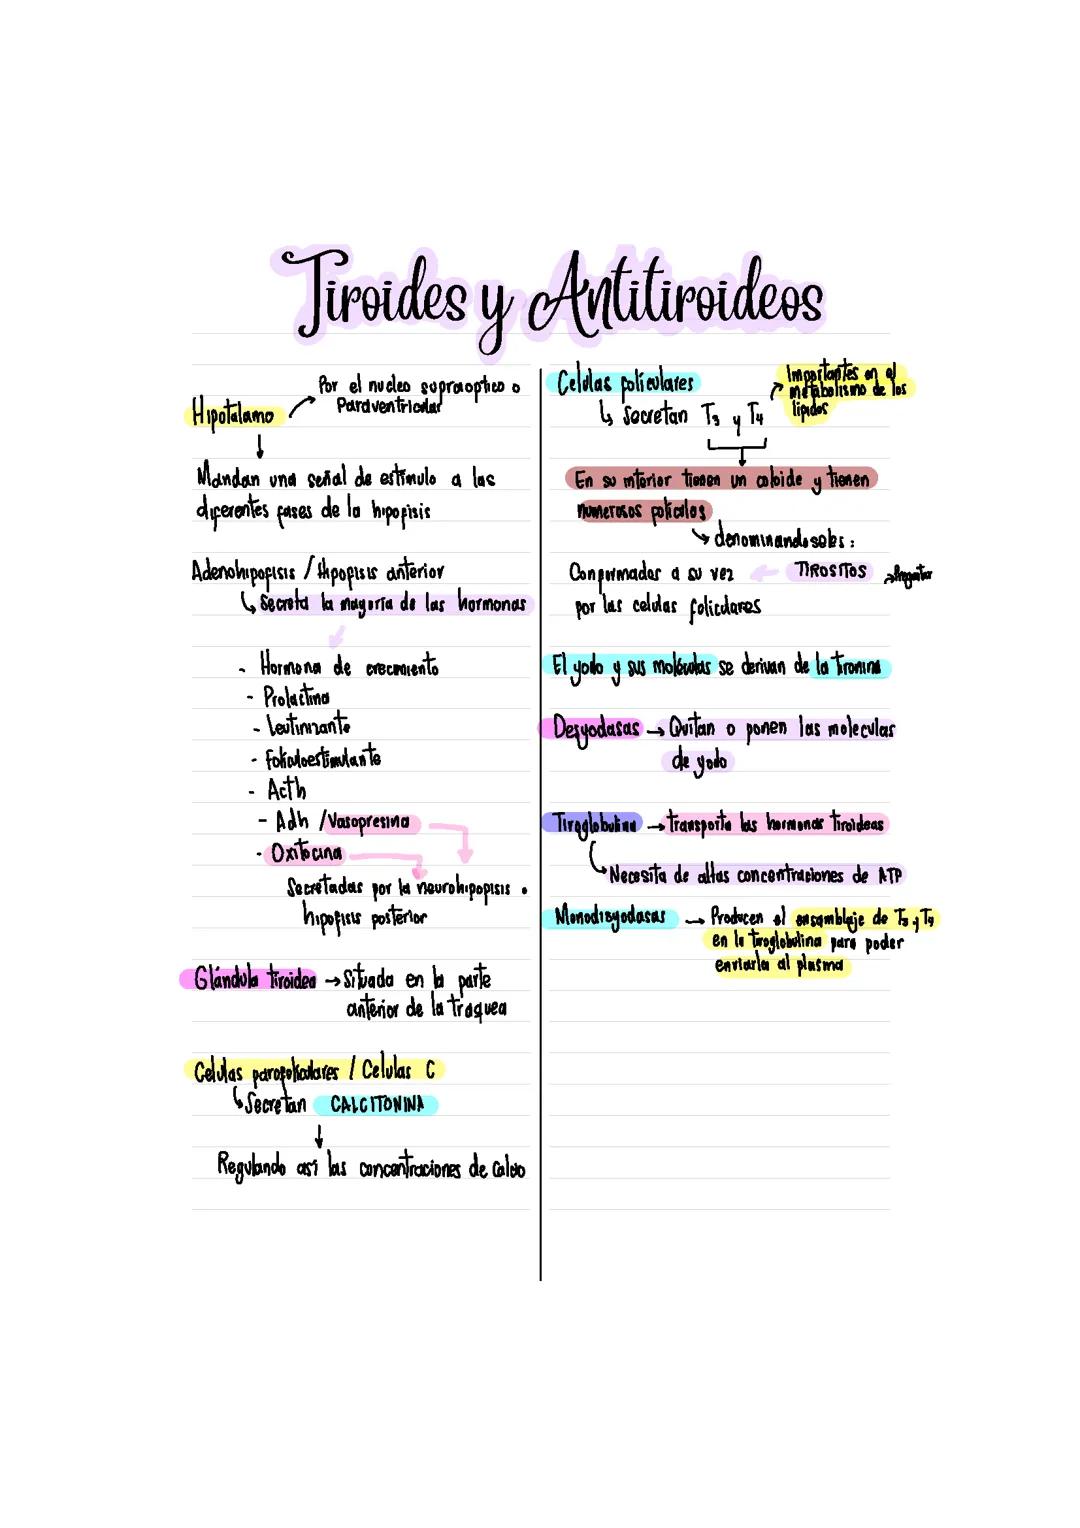 Tiroides y Antitiroideos
Hipotalamo
Por el nucleo supraoptico o
Paraventricular
Mandan una señal de estimulo a las
diferentes fases de la hipofisis
Adenohipofisis / Hipofisis anterior
Secreta la mayoria de las hormonas
- Hormona de crecimiento
- Prolactina
- Leutinizante
- Foliculoestimulante
- Acth
- Adh / Vasopresina
- Oxitocina
Secretadas por la neurohipofisis o
hipofisis posterior
Glándula tiroidea → Situada en la parte
anterior de la traquea
Celulas parafoliculares / Celulas C
Secretan CALCITONINA
Regulando asi las concentraciones de Calcio
Celulas foliculares
Secretan T3 y T4
Importantes en el
metabolismo de los
lipidos
En su interior tienen un coloide y tienen
numerosos foliculos
denominandoseles:
Conformados a su vez ← TIROSITOS → Preguntar
por las celulas foliculares
El yodo y sus moléculas se derivan de la tironina
Desyodasas → Quitan o ponen las moleculas
de yodo
Tiroglobulina → transporta las hormonas tiroideas
Necesita de altas concentraciones de ATP
Monodisyodasas → Producen el ensamblaje de T3 y T4
en la tiroglobulina para poder
enviarla al plasma